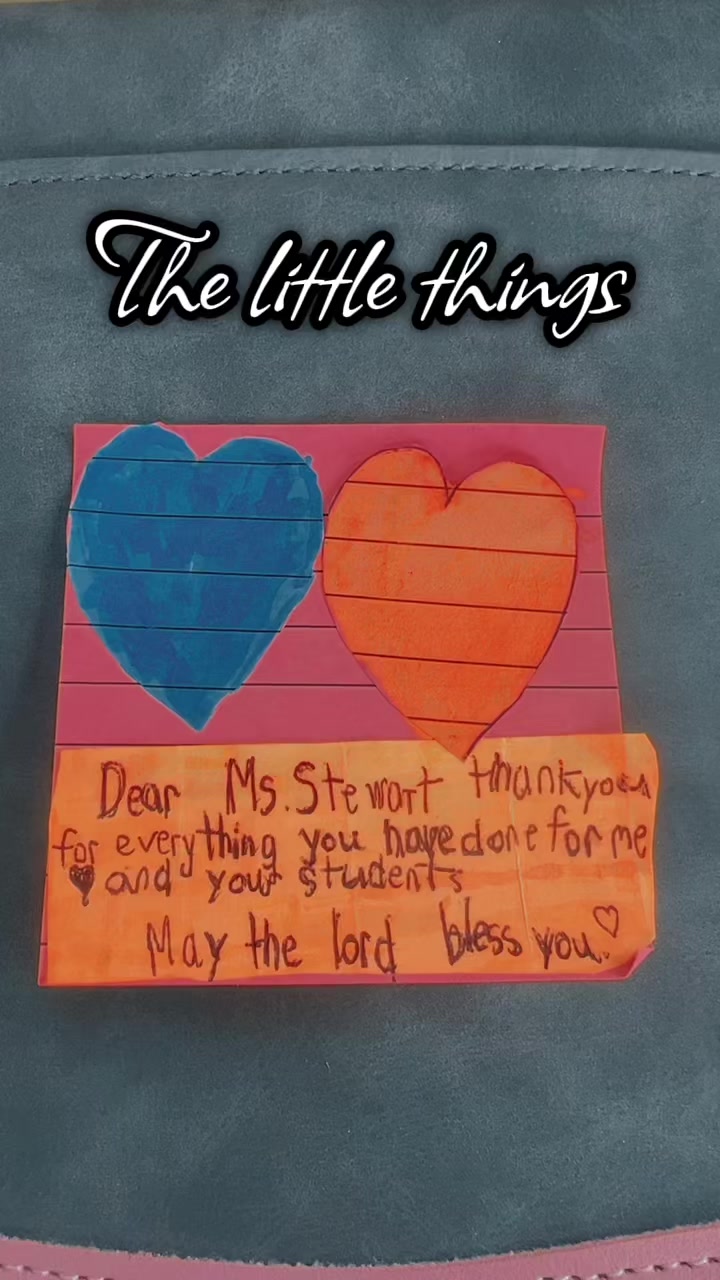 The little things
Dear Ms. Stewart thank you
for everything you have done for me
and your students
May the lord bless you.